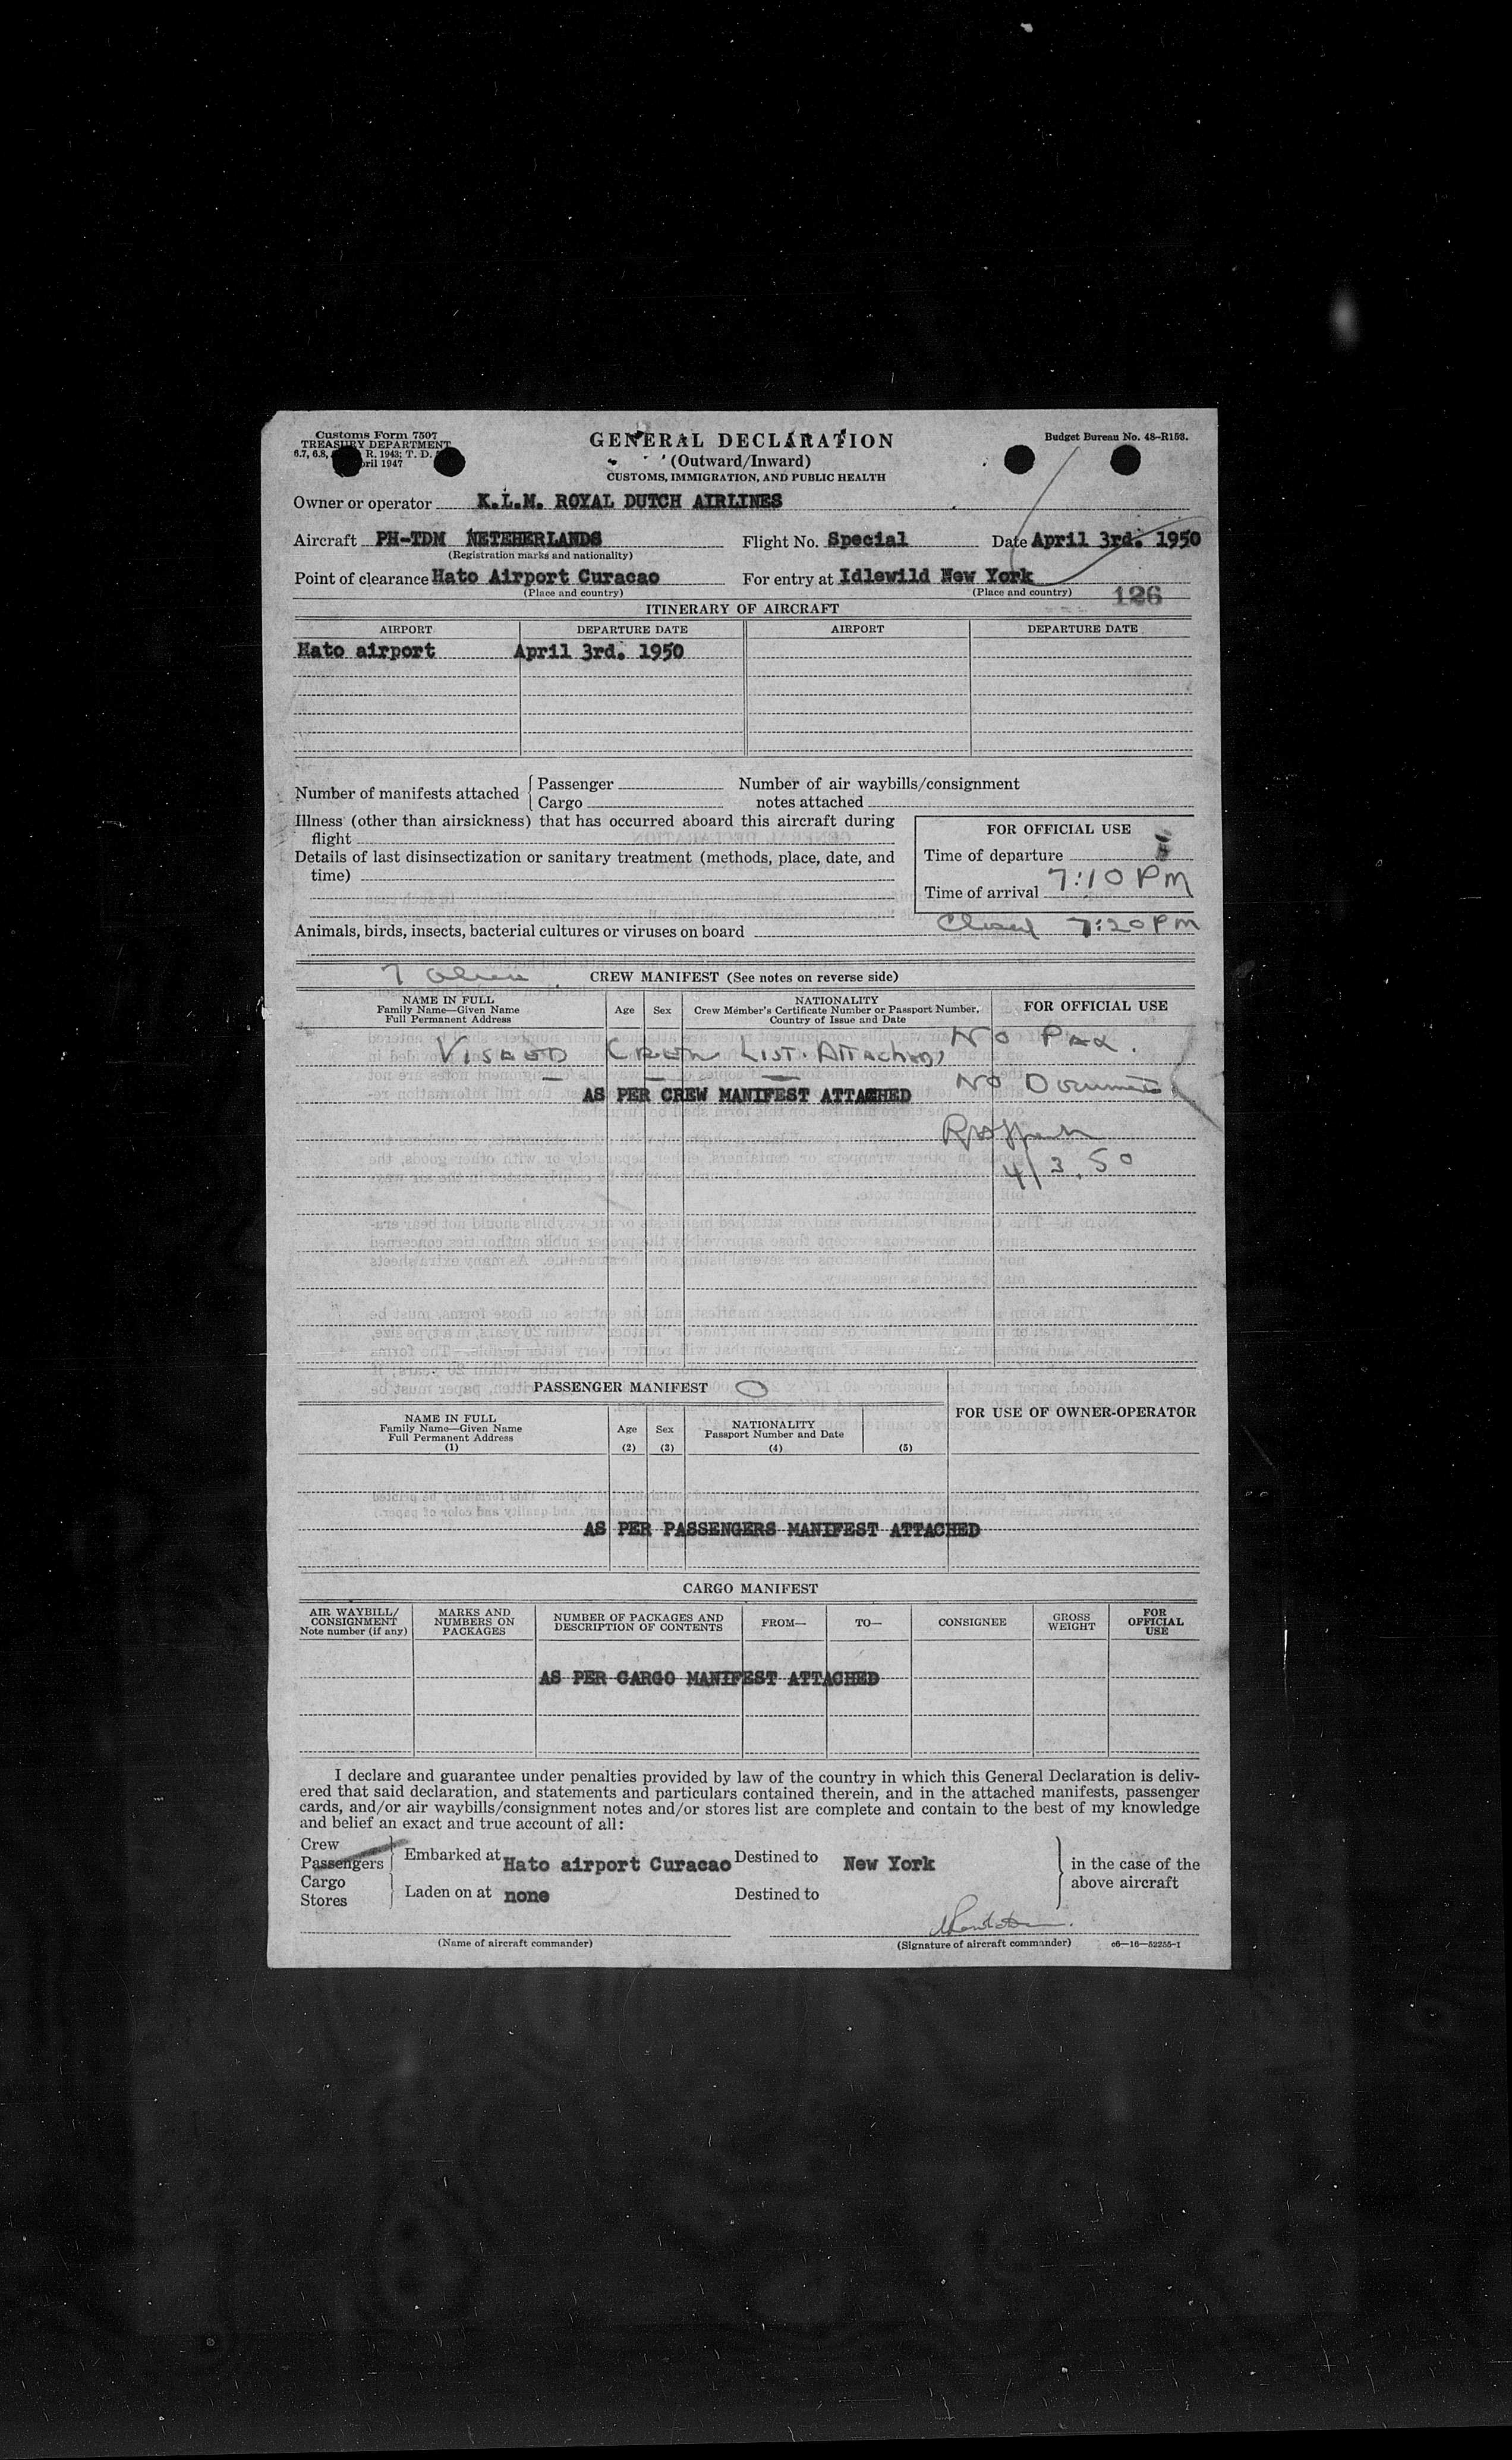 Customs Form 7507
TREASURY DEPARTMENT
6.7, 6.8, R. 1943; T. D.
April 1947
GENERAL DECLARATION
(Outward/Inward)
CUSTOMS, IMMIGRATION, AND PUBLIC HEALTH
Budget Bureau No. 48-R153.
Owner or operator K.L.M. ROYAL DUTCH AIRLINES
Aircraft PH-TDM NETEHERLANDS Flight No. Special Date April 3rd. 1950
(Registration marks and nationality)
Point of clearance Hato Airport Curacao For entry at Idlewild New York
(Place and country) (Place and country) 126
ITINERARY OF AIRCRAFT
AIRPORT DEPARTURE DATE AIRPORT DEPARTURE DATE
Hato airport April 3rd. 1950
Number of manifests attached Passenger Cargo
Number of air waybills/consignment notes attached
Illness (other than airsickness) that has occurred aboard this aircraft during
flight
Details of last disinsectization or sanitary treatment (methods, place, date, and
time)
FOR OFFICIAL USE
Time of departure
Time of arrival 7:10 PM
Closed 7:20 PM
Animals, birds, insects, bacterial cultures or viruses on board
7 CREW MANIFEST (See notes on reverse side)
NAME IN FULL
Family Name—Given Name
Full Permanent Address
Age Sex
NATIONALITY
Crew Member's Certificate Number or Passport Number,
Country of Issue and Date
FOR OFFICIAL USE
VISAED CREW LIST. ATTACHED, NO PAX.
AS PER CREW MANIFEST ATTACHED NO
4/3.50
PASSENGER MANIFEST O
FOR USE OF OWNER-OPERATOR
NAME IN FULL
Family Name—Given Name
Full Permanent Address
(1)
Age
(2)
Sex
(3)
NATIONALITY
Passport Number and Date
(4)
(5)
AS PER PASSENGERS MANIFEST ATTACHED
CARGO MANIFEST
AIR WAYBILL/
CONSIGNMENT
Note number (if any)
MARKS AND
NUMBERS ON
PACKAGES
NUMBER OF PACKAGES AND
DESCRIPTION OF CONTENTS
FROM—
TO—
CONSIGNEE
GROSS
WEIGHT
FOR
OFFICIAL
USE
AS PER CARGO MANIFEST ATTACHED
I declare and guarantee under penalties provided by law of the country in which this General Declaration is deliv-
ered that said declaration, and statements and particulars contained therein, and in the attached manifests, passenger
cards, and/or air waybills/consignment notes and/or stores list are complete and contain to the best of my knowledge
and belief an exact and true account of all:
Crew
Passengers Embarked at Hato airport Curacao Destined to New York in the case of the
Cargo above aircraft
Stores Laden on at none Destined to
(Name of aircraft commander) (Signature of aircraft commander) c6—16—52255-1